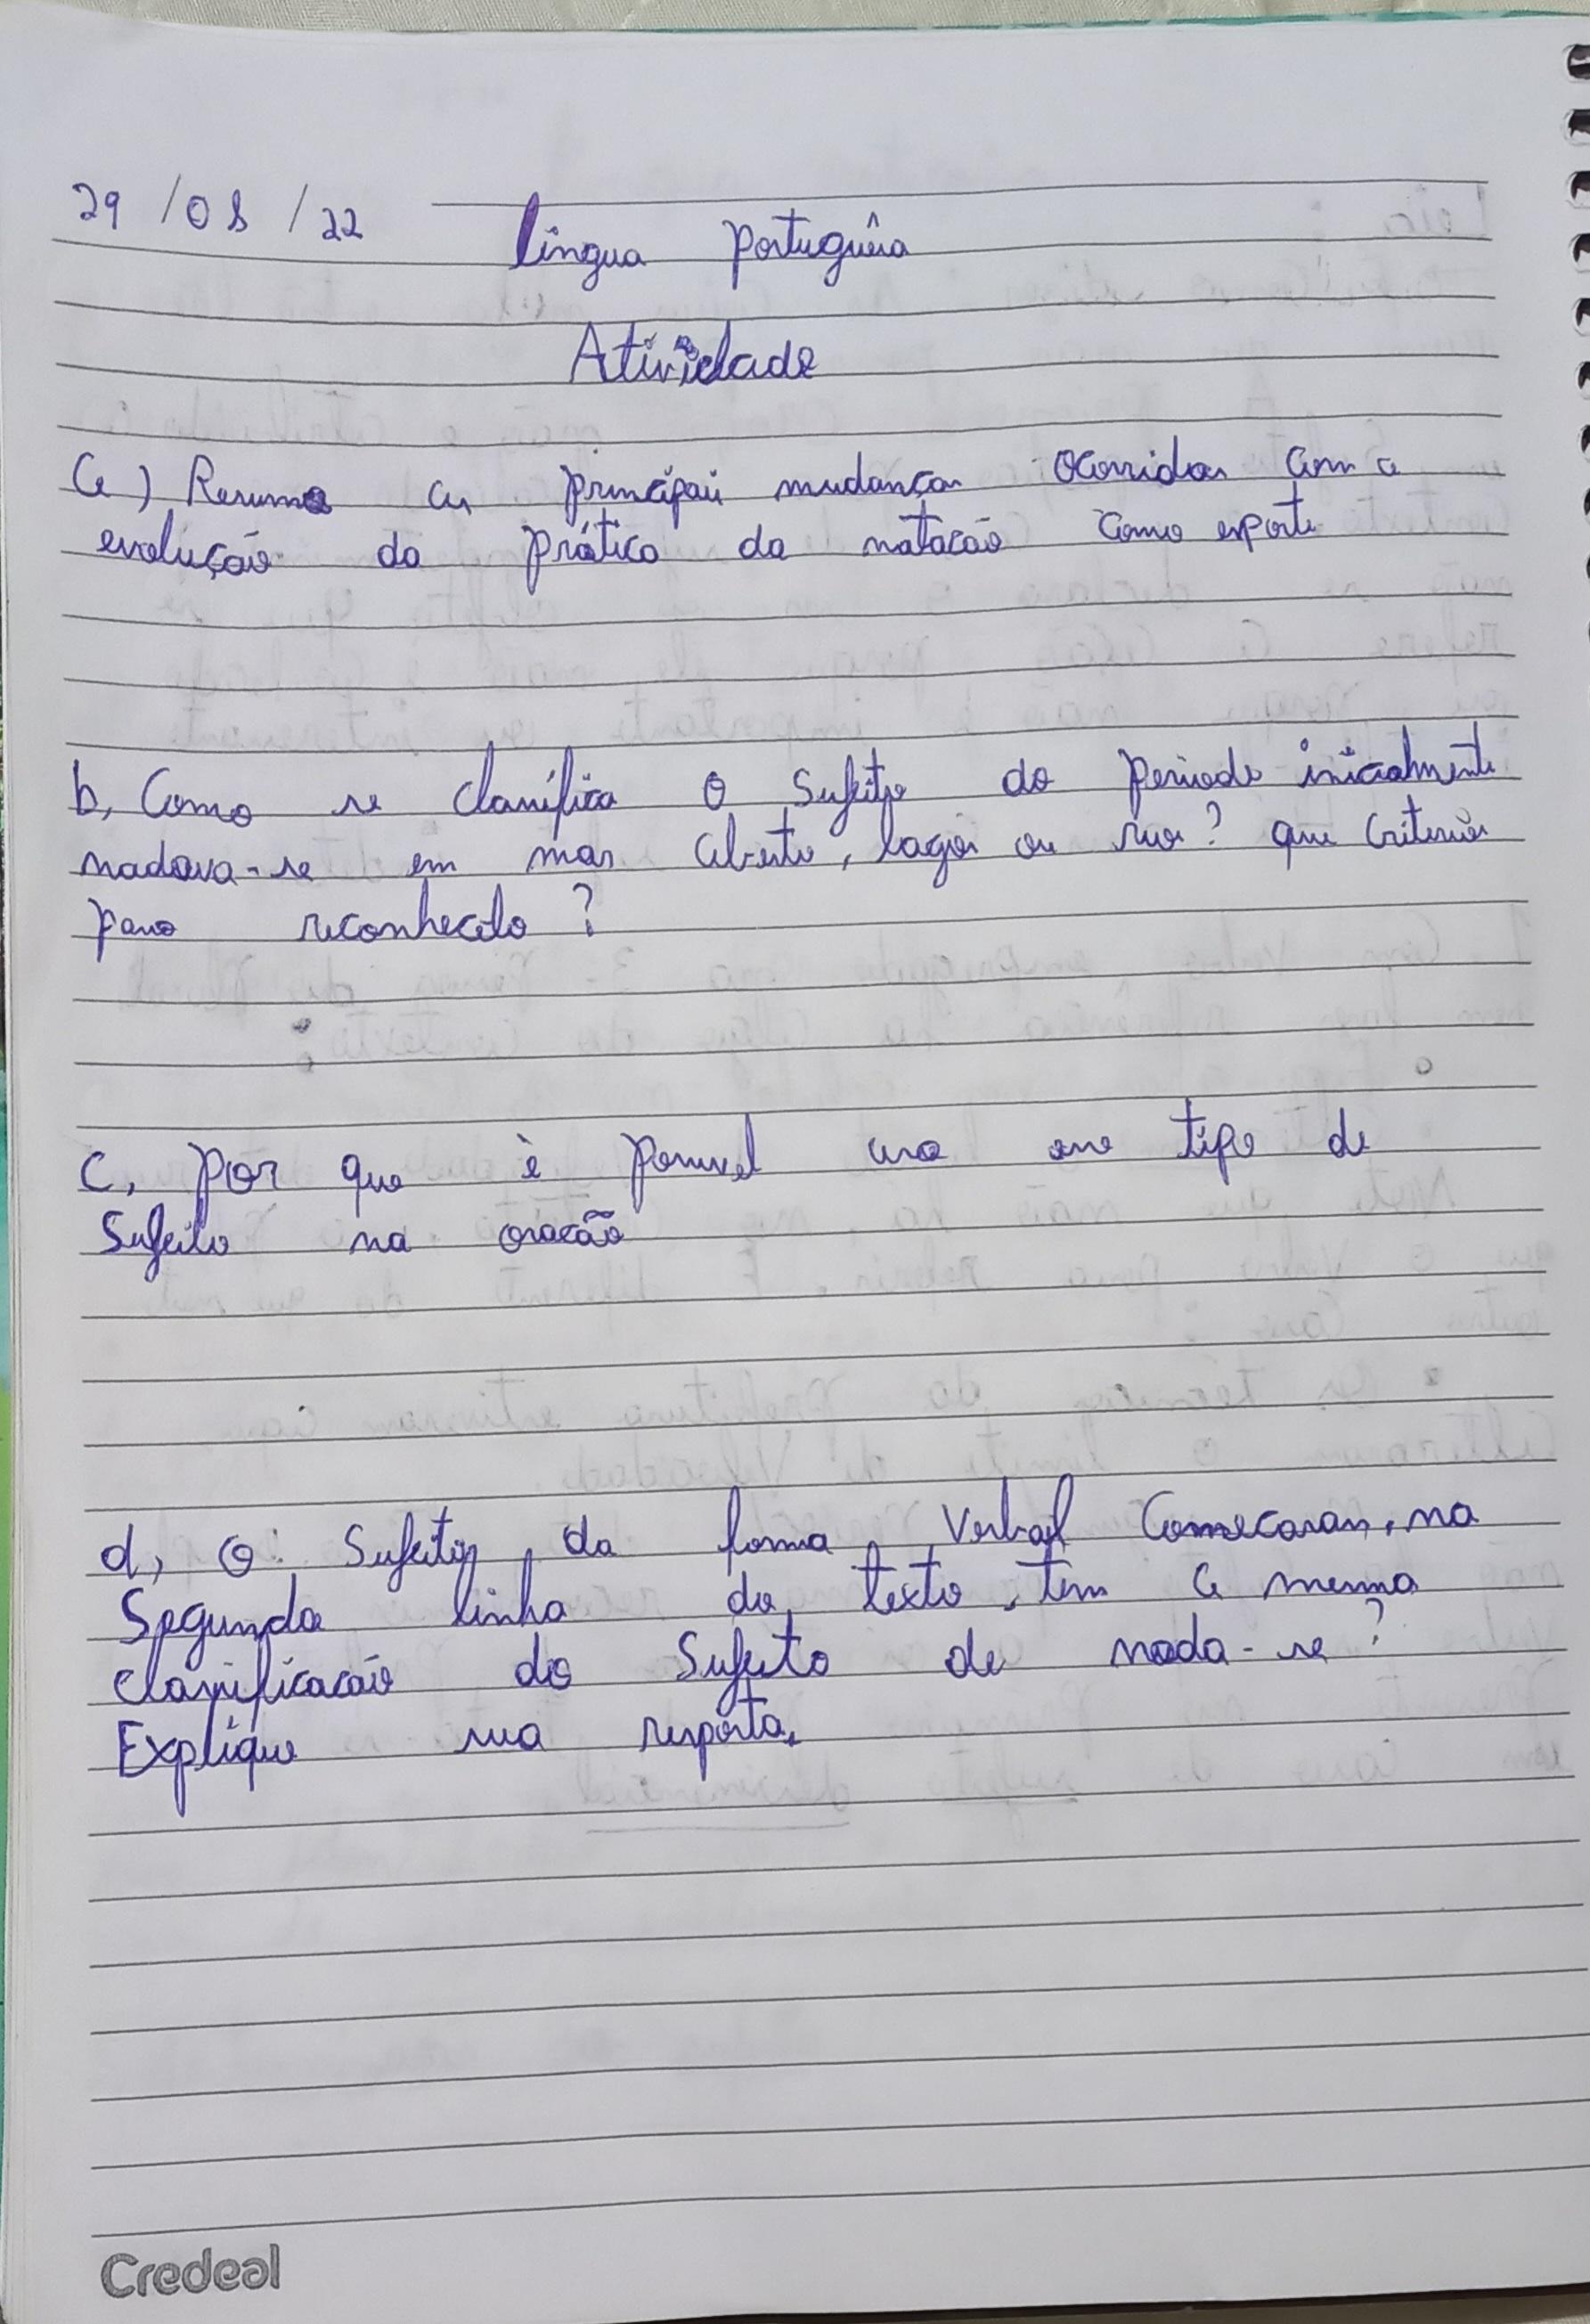 29/08/22 língua portuguêsa
Atividade
a) Resuma as principais mudanças ocorridas com a
evolução da prática da natacão como esporte
b, Como se classifica o Sujeito do periodo inicialmente
nadava-se em mar aberto, lagos ou rios? que Criterios
para reconhecelo?
C, por que è possivel usa esse tipo de
Sujeito na oracão
d, O Sujeito, da forma Verbal Comecaram, na
Segunda linha do texto, tem a mesma
classificacão do Sujeito de nada-se?
Explique sua resposta.
Credeal